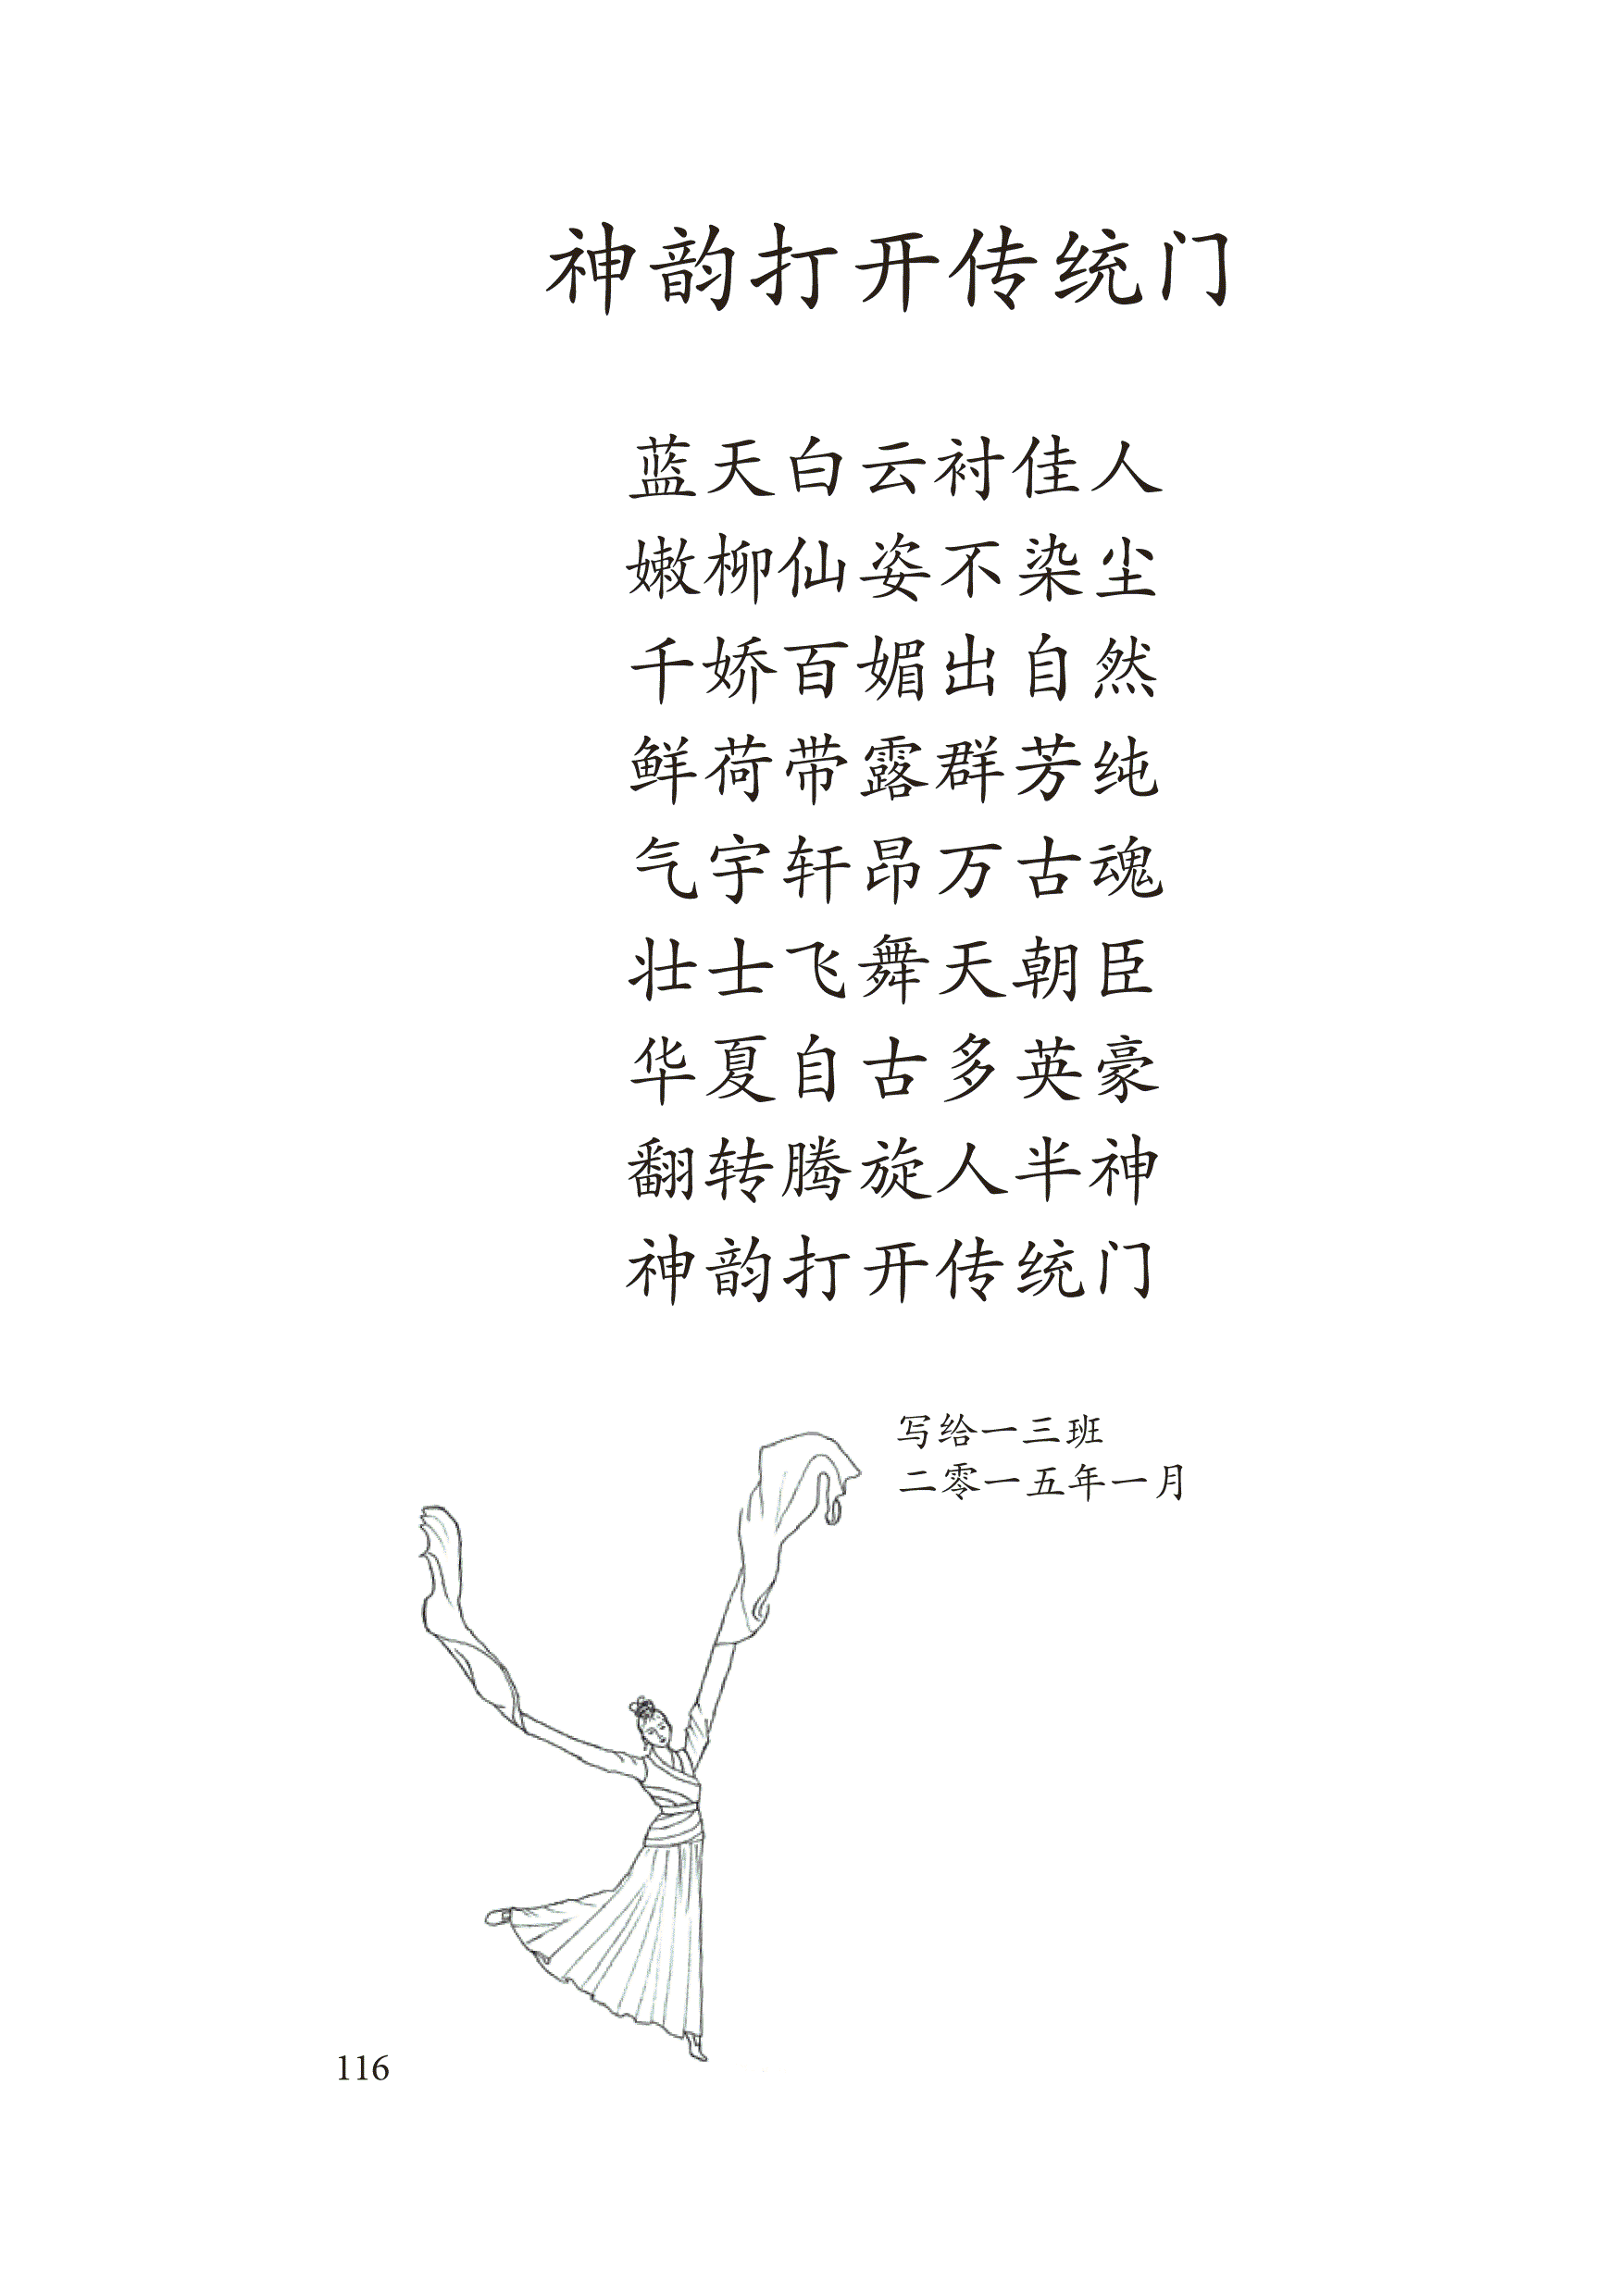 神韵打开传统门
蓝天白云衬佳人
嫩柳仙姿不染尘
千娇百媚出自然
鲜荷带露群芳纯
气宇轩昂万古魂
壮士飞舞天朝臣
华夏自古多英豪
翻转腾旋人半神
神韵打开传统门
写给一三班
二零一五年一月
116